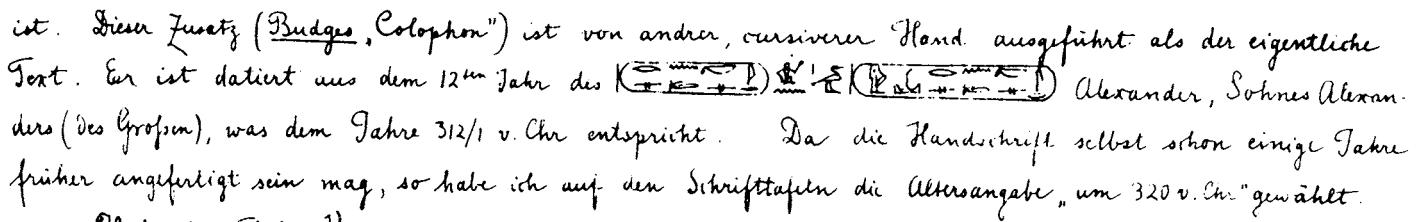 ist. Dieser Zusatz (Budges „Colophon") ist von andrer, cursiverer Hand ausgeführt als der eigentliche
Text. Er ist datiert aus dem 12ten Jahr des Alexander, Sohnes Alexan-
ders (des Großen), was dem Jahre 312/1 v. Chr entspricht. Da die Handschrift selbst schon einige Jahre
früher angefertigt sein mag, so habe ich auf den Schrifttafeln die Altersangabe „um 320 v. Chr" gewählt.